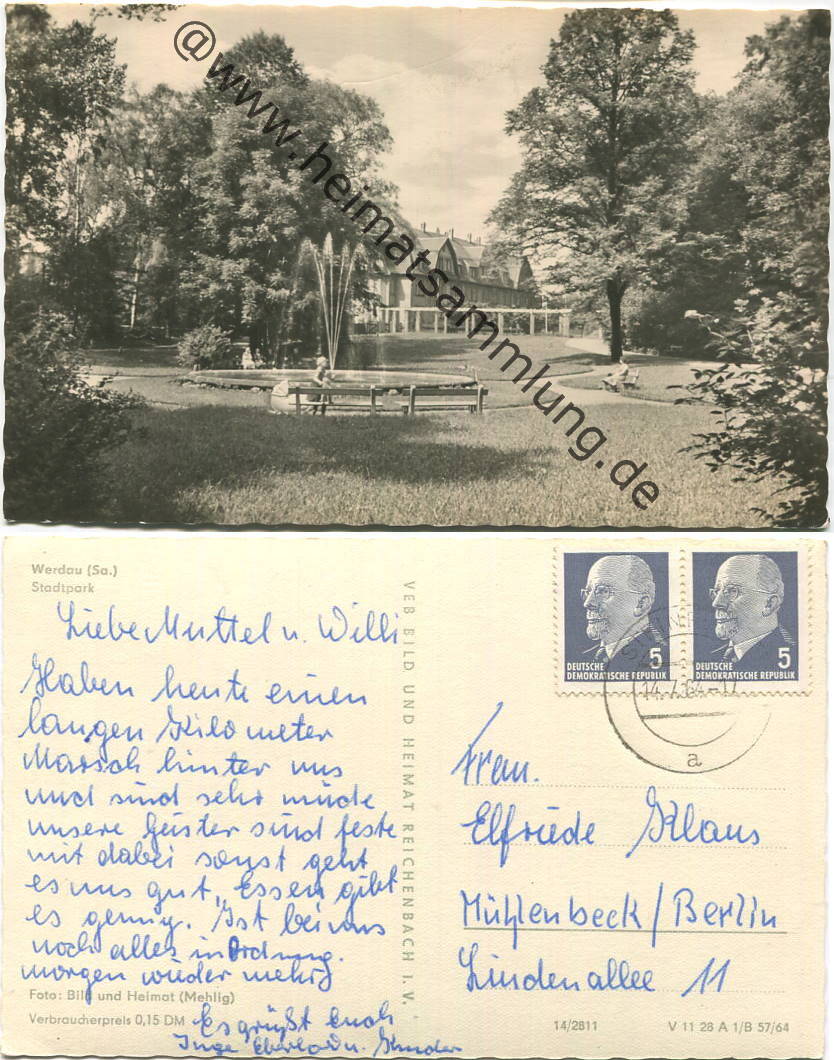 @www.heimatsammlung.de
Werdau (Sa.)
Stadtpark
Liebe Muttel u. Willi
Haben heute einen
langen Kilometer
Marsch hinter uns
und sind sehr müde
unsere Geister sind feste
mit dabei sonst geht
es uns gut, Essen gibt
es genug. Ist bei uns
noch alles in Ordnung.
morgen wieder mehr
Es grüßt euch
Inge Eberhard u. Kinder
Foto: Bild und Heimat (Mehlig)
Verbraucherpreis 0,15 DM
VEB BILD UND HEIMAT REICHENBACH I. V.
5
DEUTSCHE
DEMOKRATISCHE REPUBLIK
5
DEUTSCHE
DEMOKRATISCHE REPUBLIK
14.7.64-17
a
Frau.
Elfriede Klaus
Mühlenbeck/Berlin
Lindenallee 11
14/2811
V 11 28 A 1/B 57/64